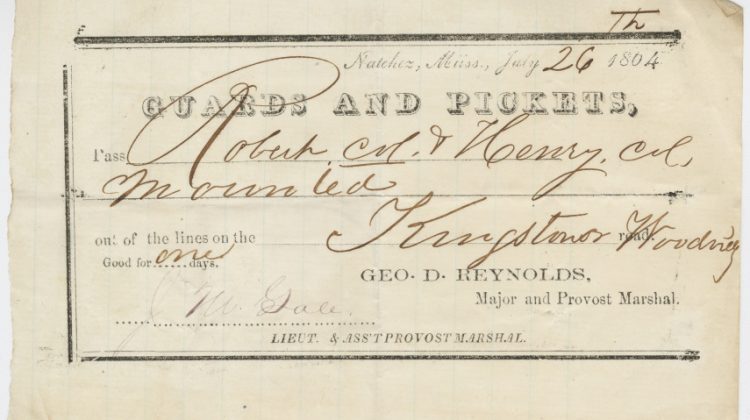 Th
Natchez, Miss., July 26 1864
GUARDS AND PICKETS,
Pass Robert, col. & Henry, col,
Mounted
out of the lines on the Kingston or Woodville road.
Good for one days.
GEO. D. REYNOLDS,
Major and Provost Marshal.
J M Gale.
LIEUT. & ASS'T PROVOST MARSHAL.